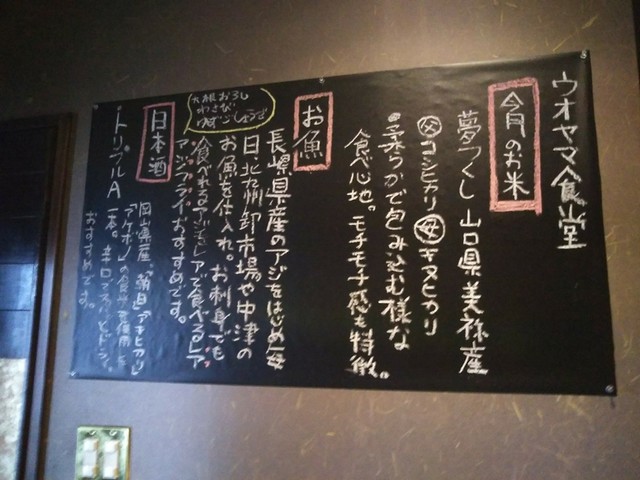 ウオヤマ食堂
今月のお米
夢つくし 山口県美祢産
父コシヒカリ 母キヌヒカリ
柔らかで包み込む様な
食べ心地。モチモチ感も特徴。
お魚
大根おろし
わさび
ゆずごしょうで
長崎県産のアジをはじめ毎
日、北九州卸市場や中津の
お魚を仕入れ。お刺身でも
食べれるアジをレアで食べるレア
アジフライおすすめです。
日本酒
トリプルA
岡山県産「朝日」「アキヒカリ」
「アケボノ」の食米を使用し
一本。辛口でスパッとドライ。
おすすめです。